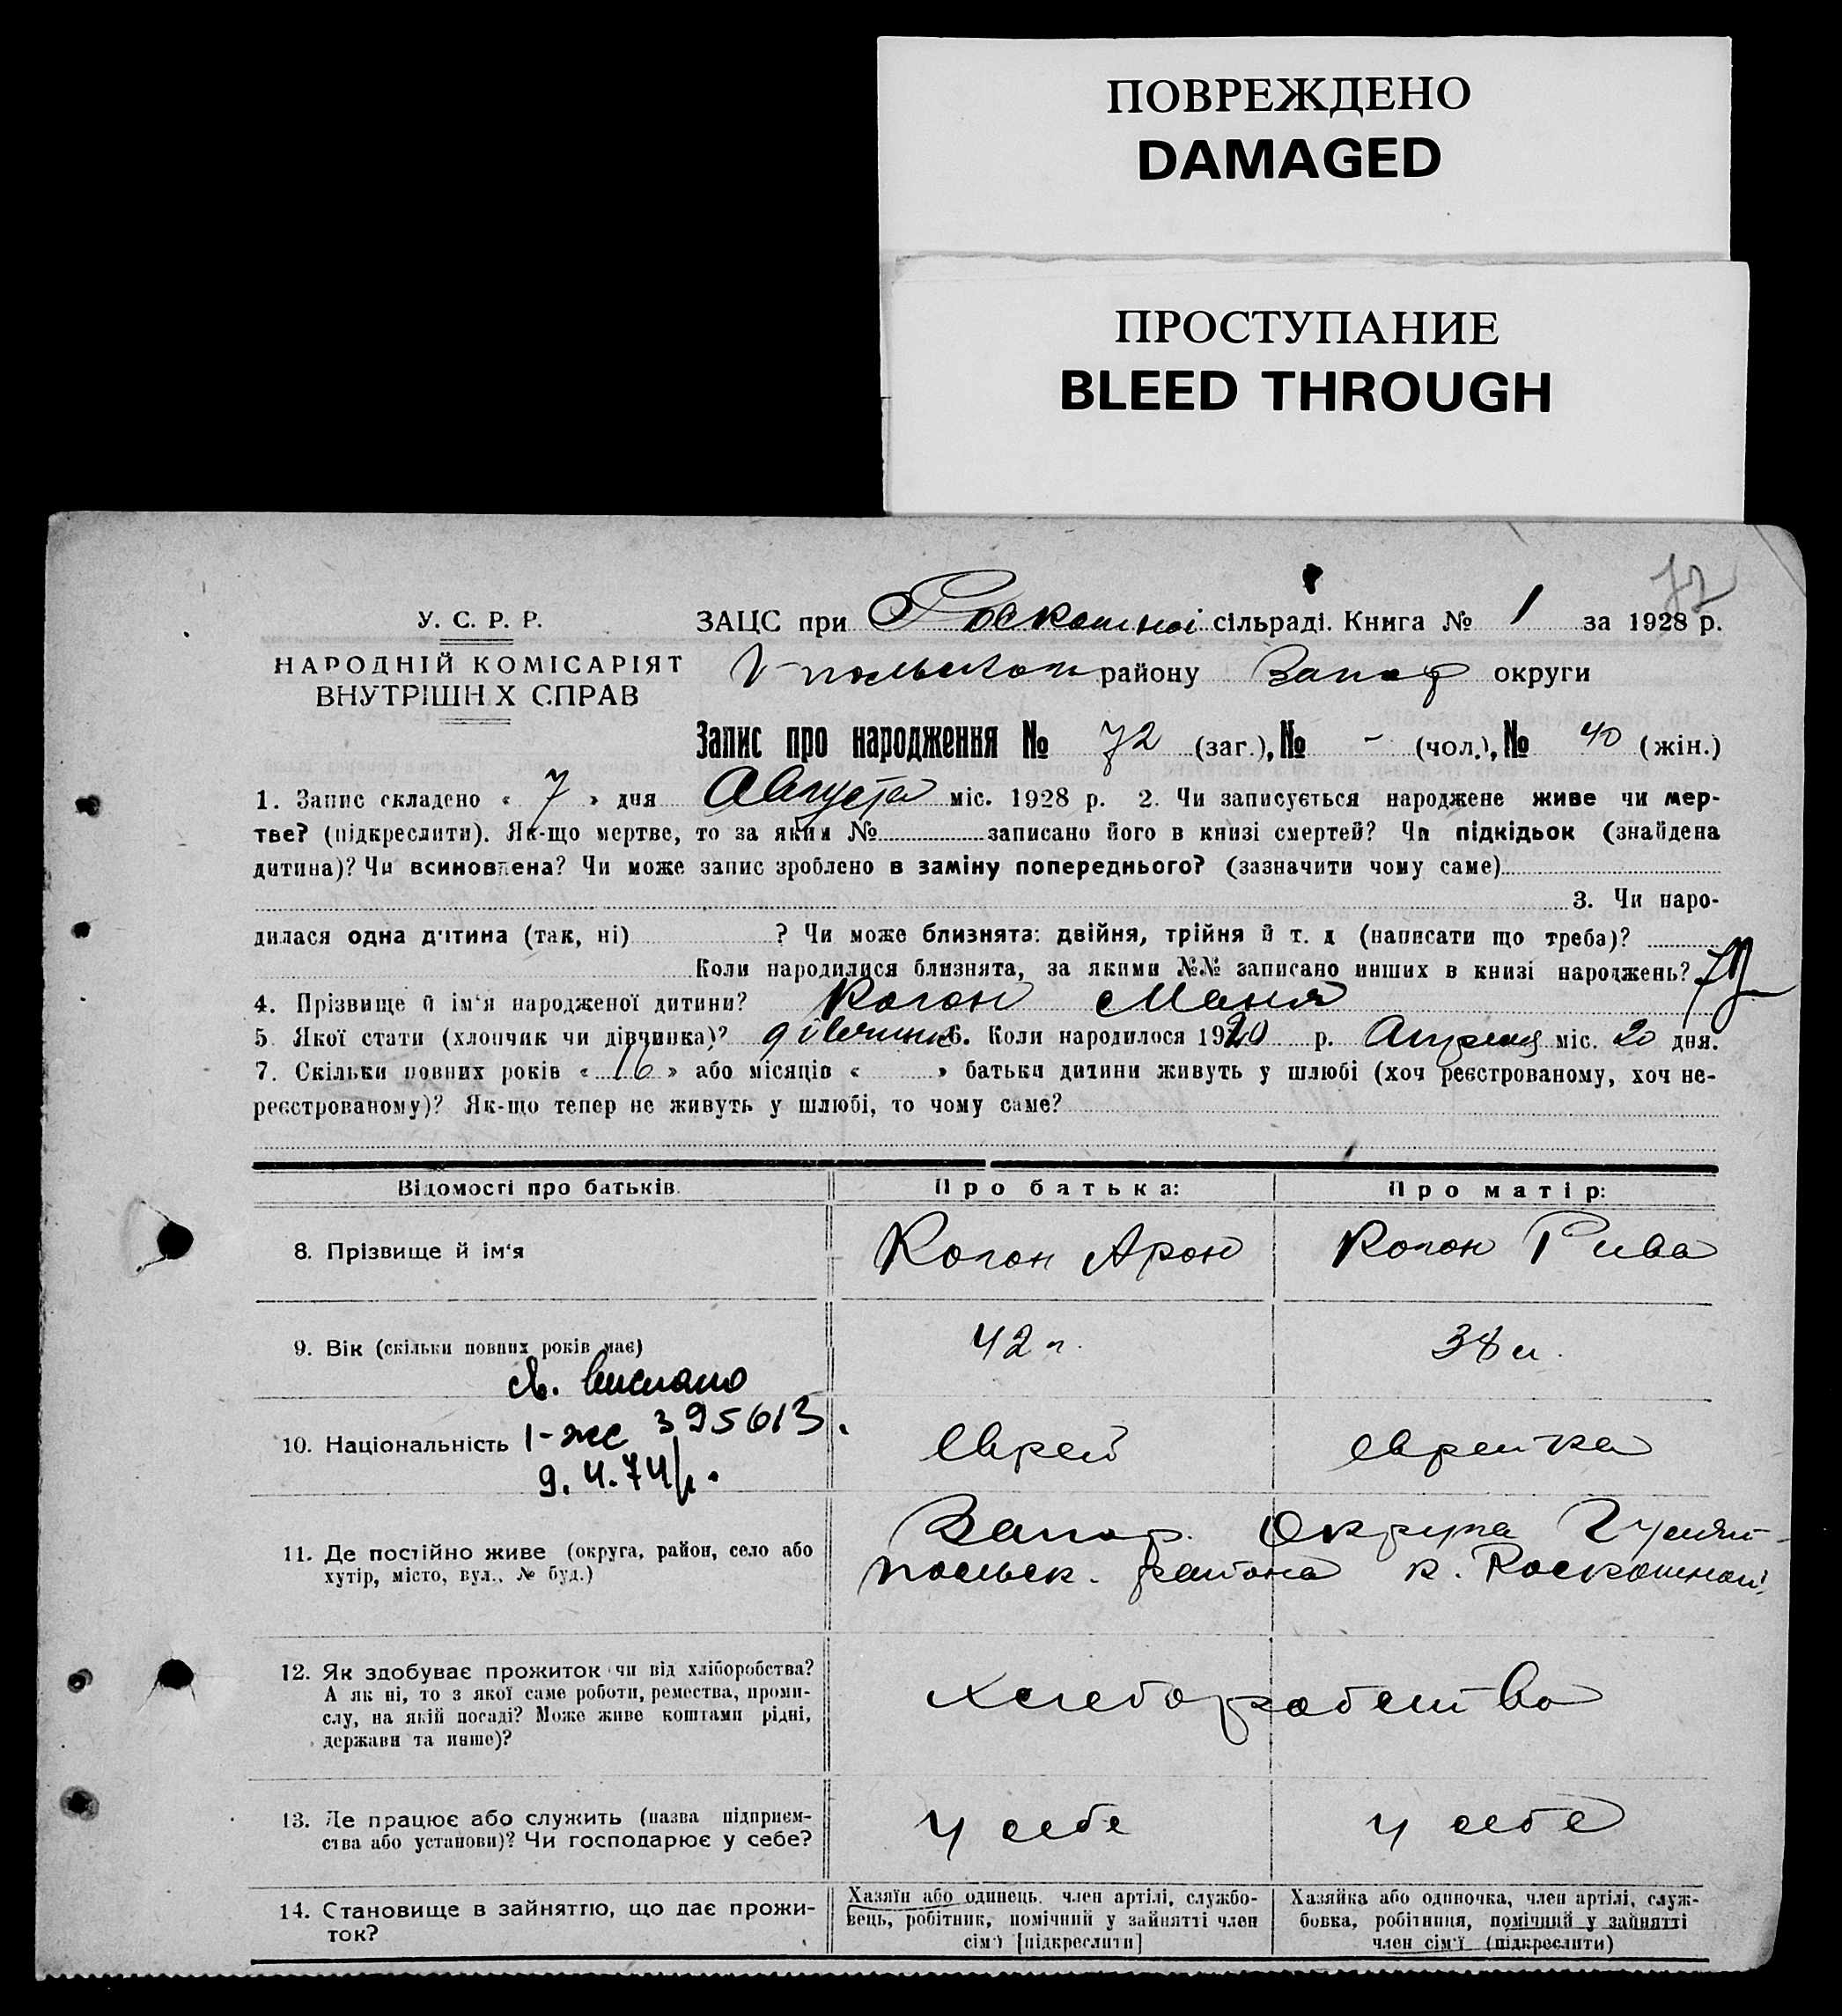 ПОВРЕЖДЕНО
DAMAGED
ПРОСТУПАНИЕ
BLEED THROUGH
72
У. С. Р. Р.
НАРОДНІЙ КОМІСАРІЯТ
ВНУТРІШН Х СПРАВ
ЗАЦС при Роскошної сільраді. Книга № 1 за 1928 р.
району Запор округи
Запис про народження № 72 (заг.), № - (чол.), № 40 (жін.)
1. Запис складено « 7 » дня Августа міс. 1928 р. 2. Чи записується народжене живе чи мер-
тве? (підкреслити). Як-що мертве, то за яким № записано його в книзі смертей? Чи підкідьок (знайдена
дитина)? Чи всиновлена? Чи може запис зроблено в заміну попереднього? (зазначити чому саме)
3. Чи наро-
дилася одна дитина (так, ні) ? Чи може близнята: двійня, трійня й т. д (написати що треба)?
Коли народилися близнята, за якими №№ записано инших в книзі народжень?
4. Прізвище й ім'я народженої дитини? Когон Маня
5. Якої стати (хлопчик чи дівчинка)? дівчинка 6. Коли народилося 1920 р. Апреля міс. 20 дня.
7. Скільки повних років « 16 » або місяців « » батьки дитини живуть у шлюбі (хоч реєстрованому, хоч не-
реєстрованому)? Як-що тепер не живуть у шлюбі, то чому саме?
Відомості про батьків. Про батька: Про матір:
8. Прізвище й ім'я Когон Арон Когон Рива
9. Вік (скільки повних років має) 42 г. 38 л.
св. выслано
10. Національність І-жс 395613. Еврей еврейка
9.4.74 р.
11. Де постійно живе (округа, район, село або Запор. Округа Гуляй-
хутір, місто, вул., № буд.) польск. района к. Роскошной
12. Як здобуває прожиток чи від хліборобства?
А як ні, то з якої саме роботи, ремества, проми- хлеборобство
слу, на якій посаді? Може живе коштами рідні,
держави та инше)?
13. Де працює або служить (назва підприєм- у себе у себе
ства або установи)? Чи господарює у себе?
14. Становище в зайняттю, що дає прожи- Хазяїн або одинець, член артілі, службо- Хазяйка або одиночка, член артілі, служ-
ток? вець, робітник, помічний у зайнятті член бовка, робітниця, помічний у зайнятті
сім'ї [підкреслити] член сім'ї (підкреслити)